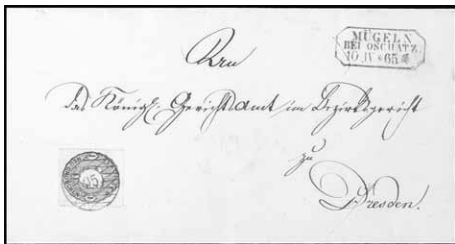 MÜGELN
BEI OSCHATZ.
10 IV 65
An
das Königl. Gerichtsamt im Bezirksgericht
zu
Dresden.